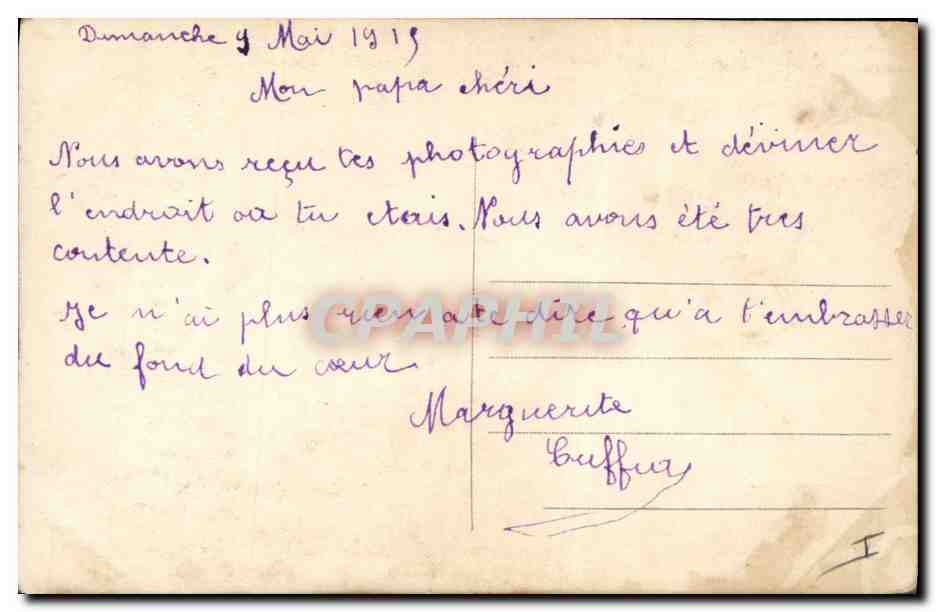 Dimanche 9 Mai 1915
Mon papa chéri
Nous avons reçu tes photographies et déviner
l'endroit où tu etais. Nous avons été tres
contente.
Je n'ai plus rien a te dire qu'a t'embrasser
du fond du cœur.
Marguerite
I
CPAPHIL